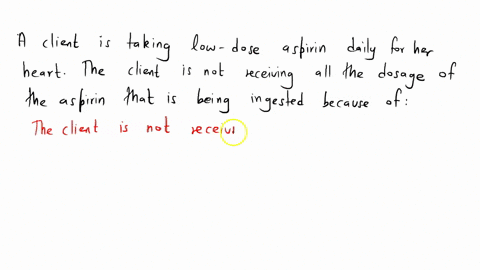 A client is taking low-dose aspirin daily for her
heart. The client is not receiving all the dosage of
the aspirin that is being ingested because of:
The client is not receiv